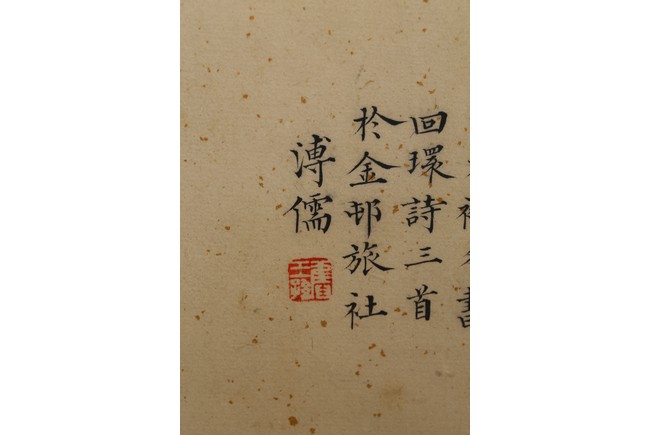 書
回環詩三首
於金邨旅社
溥儒